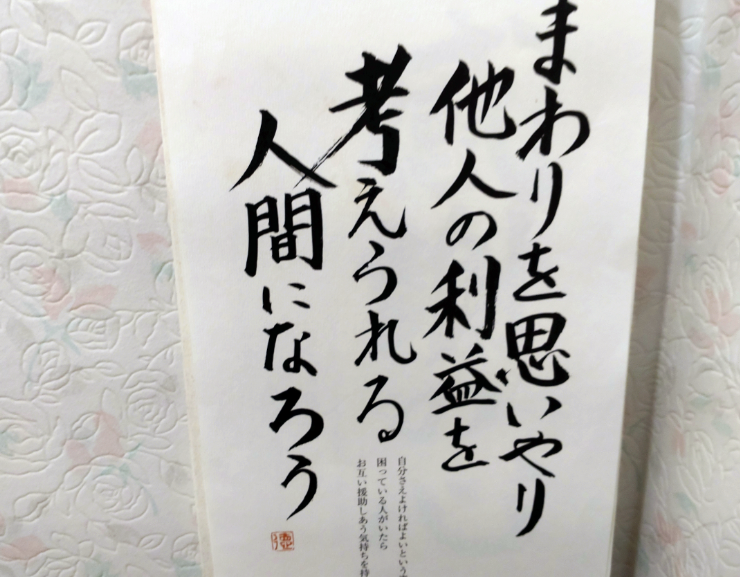 まわりを思いやり
他人の利益を
考えられる
人間になろう
自分さえよければよいという
困っている人がいたら
お互い援助しあう気持ちを